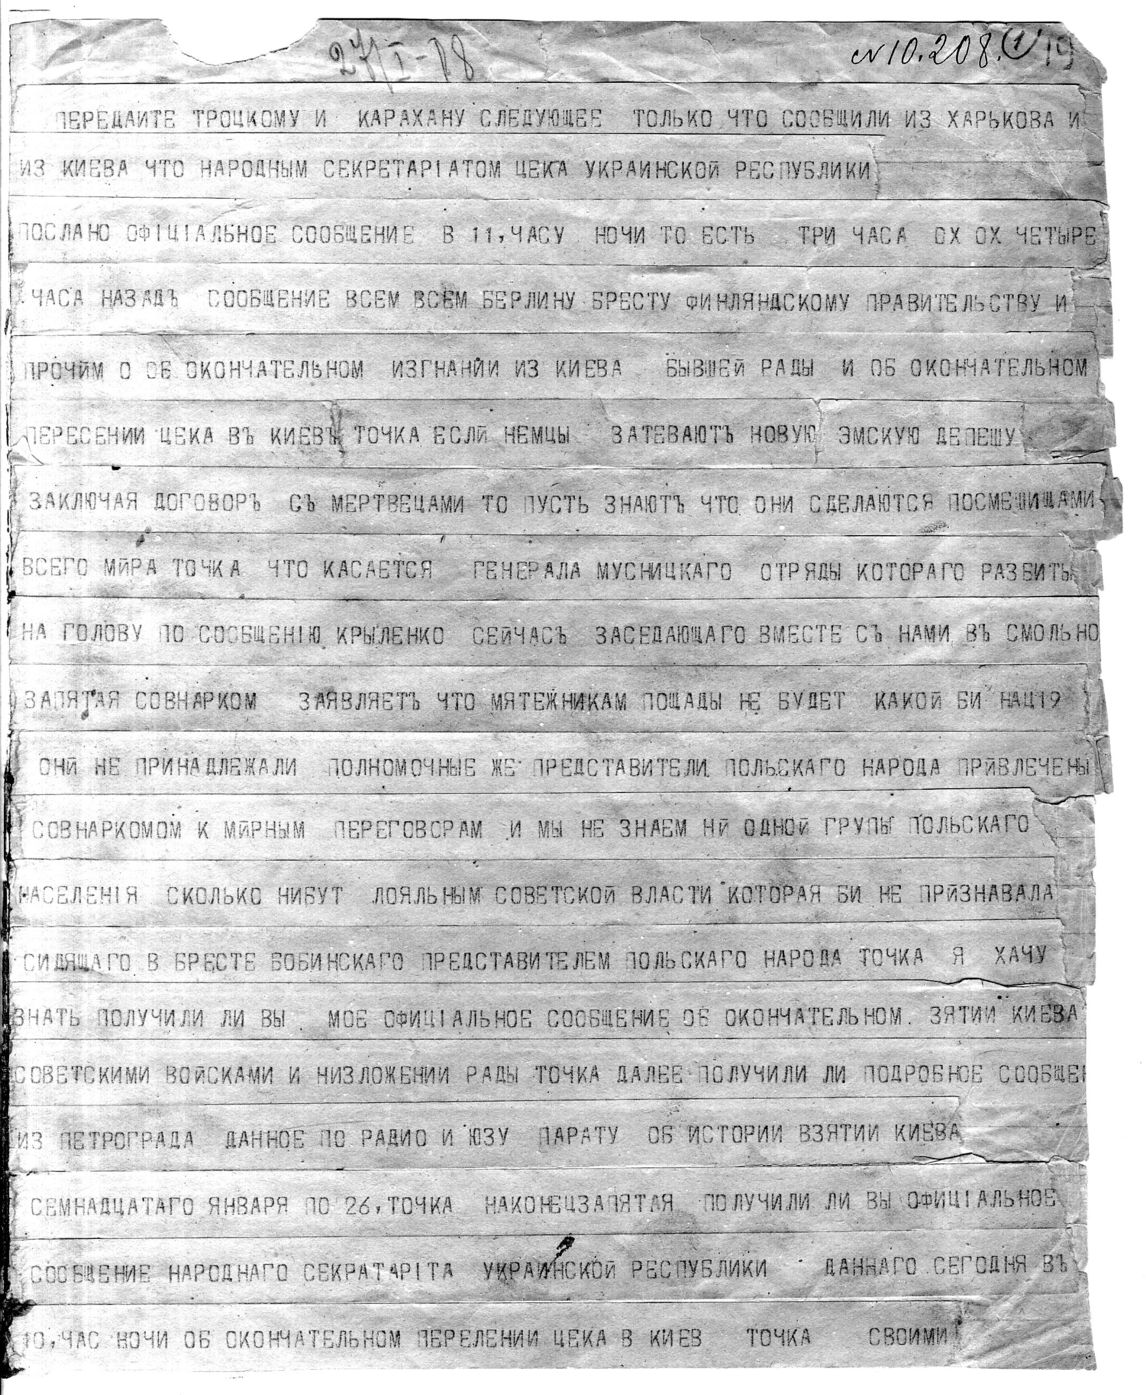 27/I-18
N 10.208. (1) 19
ПЕРЕДАИТЕ ТРОЦКОМУ И КАРАХАНУ СЛЕДУЮЩЕЕ ТОЛЬКО ЧТО СООБЩИЛИ ИЗ ХАРЬКОВА И
ИЗ КИЕВА ЧТО НАРОДНЫМ СЕКРЕТАРІАТОМ ЦЕКА УКРАИНСКОЙ РЕСПУБЛИКИ
ПОСЛАНО ОФІЦІАЛЬНОЕ СООБЩЕНИЕ В 11, ЧАСУ НОЧИ ТО ЕСТЬ ТРИ ЧАСА ОХ ОХ ЧЕТЫРЕ
ЧАСА НАЗАДЪ СООБЩЕНИЕ ВСЕМ ВСЕМ БЕРЛИНУ БРЕСТУ ФИНЛЯНДСКОМУ ПРАВИТЕЛЬСТВУ И
ПРОЧЙМ О ОБ ОКОНЧАТЕЛЬНОМ ИЗГНАНЙИ ИЗ КИЕВА БЫВШЕЙ РАДЫ И ОБ ОКОНЧАТЕЛЬНОМ
ПЕРЕСЕНИИ ЦЕКА ВЪ КИЕВЪ ТОЧКА ЕСЛЙ НЕМЦЫ ЗАТЕВАЮТЪ НОВУЮ ЭМСКУЮ ДЕПЕШУ
ЗАКЛЮЧАЯ ДОГОВОРЪ СЪ МЕРТВЕЦАМИ ТО ПУСТЬ ЗНАЮТЪ ЧТО ОНИ СДЕЛАЮТСЯ ПОСМЕШИЩАМИ
ВСЕГО МЙРА ТОЧКА ЧТО КАСАЕТСЯ ГЕНЕРАЛА МУСНИЦКАГО ОТРЯДЫ КОТОРАГО РАЗБИТЫ
НА ГОЛОВУ ПО СООБЩЕНІЮ КРЫЛЕНКО СЕЙЧАСЪ ЗАСЕДАЮЩАГО ВМЕСТЕ СЪ НАМИ ВЪ СМОЛЬНО
ЗАПЯТАЯ СОВНАРКОМ ЗАЯВЛЯЕТЪ ЧТО МЯТЕЖНИКАМ ПОЩАДЫ НЕ БУДЕТ КАКОЙ БИ НАЦ19
ОНЙ НЕ ПРИНАДЛЕЖАЛИ ПОЛНОМОЧНЫЕ ЖЕ ПРЕДСТАВИТЕЛИ ПОЛЬСКАГО НАРОДА ПРЙВЛЕЧЕНЫ
СОВНАРКОМОМ К МЙРНЫМ ПЕРЕГОВОРАМ И МЫ НЕ ЗНАЕМ НЙ ОДНОЙ ГРУПЫ ПОЛЬСКАГО
НАСЕЛЕНІЯ СКОЛЬКО НИБУТ ЛОЯЛЬНЫМ СОВЕТСКОЙ ВЛАСТИ КОТОРАЯ БИ НЕ ПРЙЗНАВАЛА
СИДЯЩАГО В БРЕСТЕ БОБИНСКАГО ПРЕДСТАВИТЕЛЕМ ПОЛЬСКАГО НАРОДА ТОЧКА Я ХАЧУ
ЗНАТЬ ПОЛУЧИЛИ ЛИ ВЫ МОЕ ОФИЦІАЛЬНОЕ СООБЩЕНИЕ ОБ ОКОНЧАТЕЛЬНОМ. ЗЯТИИ КИЕВА
СОВЕТСКИМИ ВОЙСКАМИ И НИЗЛОЖЕНИИ РАДЫ ТОЧКА ДАЛЕЕ ПОЛУЧИЛИ ЛИ ПОДРОБНОЕ СООБЩЕН
ИЗ ПЕТРОГРАДА ДАННОЕ ПО РАДИО И ЮЗУ ПАРАТУ ОБ ИСТОРИИ ВЗЯТИИ КИЕВА
СЕМНАДЦАТАГО ЯНВАРЯ ПО 26, ТОЧКА НАКОНЕЦЗАПЯТАЯ ПОЛУЧИЛИ ЛИ ВЫ ОФИЦІАЛЬНОЕ
СООБЩЕНИЕ НАРОДНАГО СЕКРАТАРІТА УКРАИНСКОЙ РЕСПУБЛИКИ ДАННАГО СЕГОДНЯ ВЪ
10, ЧАС НОЧИ ОБ ОКОНЧАТЕЛЬНОМ ПЕРЕЛЕНИИ ЦЕКА В КИЕВ ТОЧКА СВОИМИ